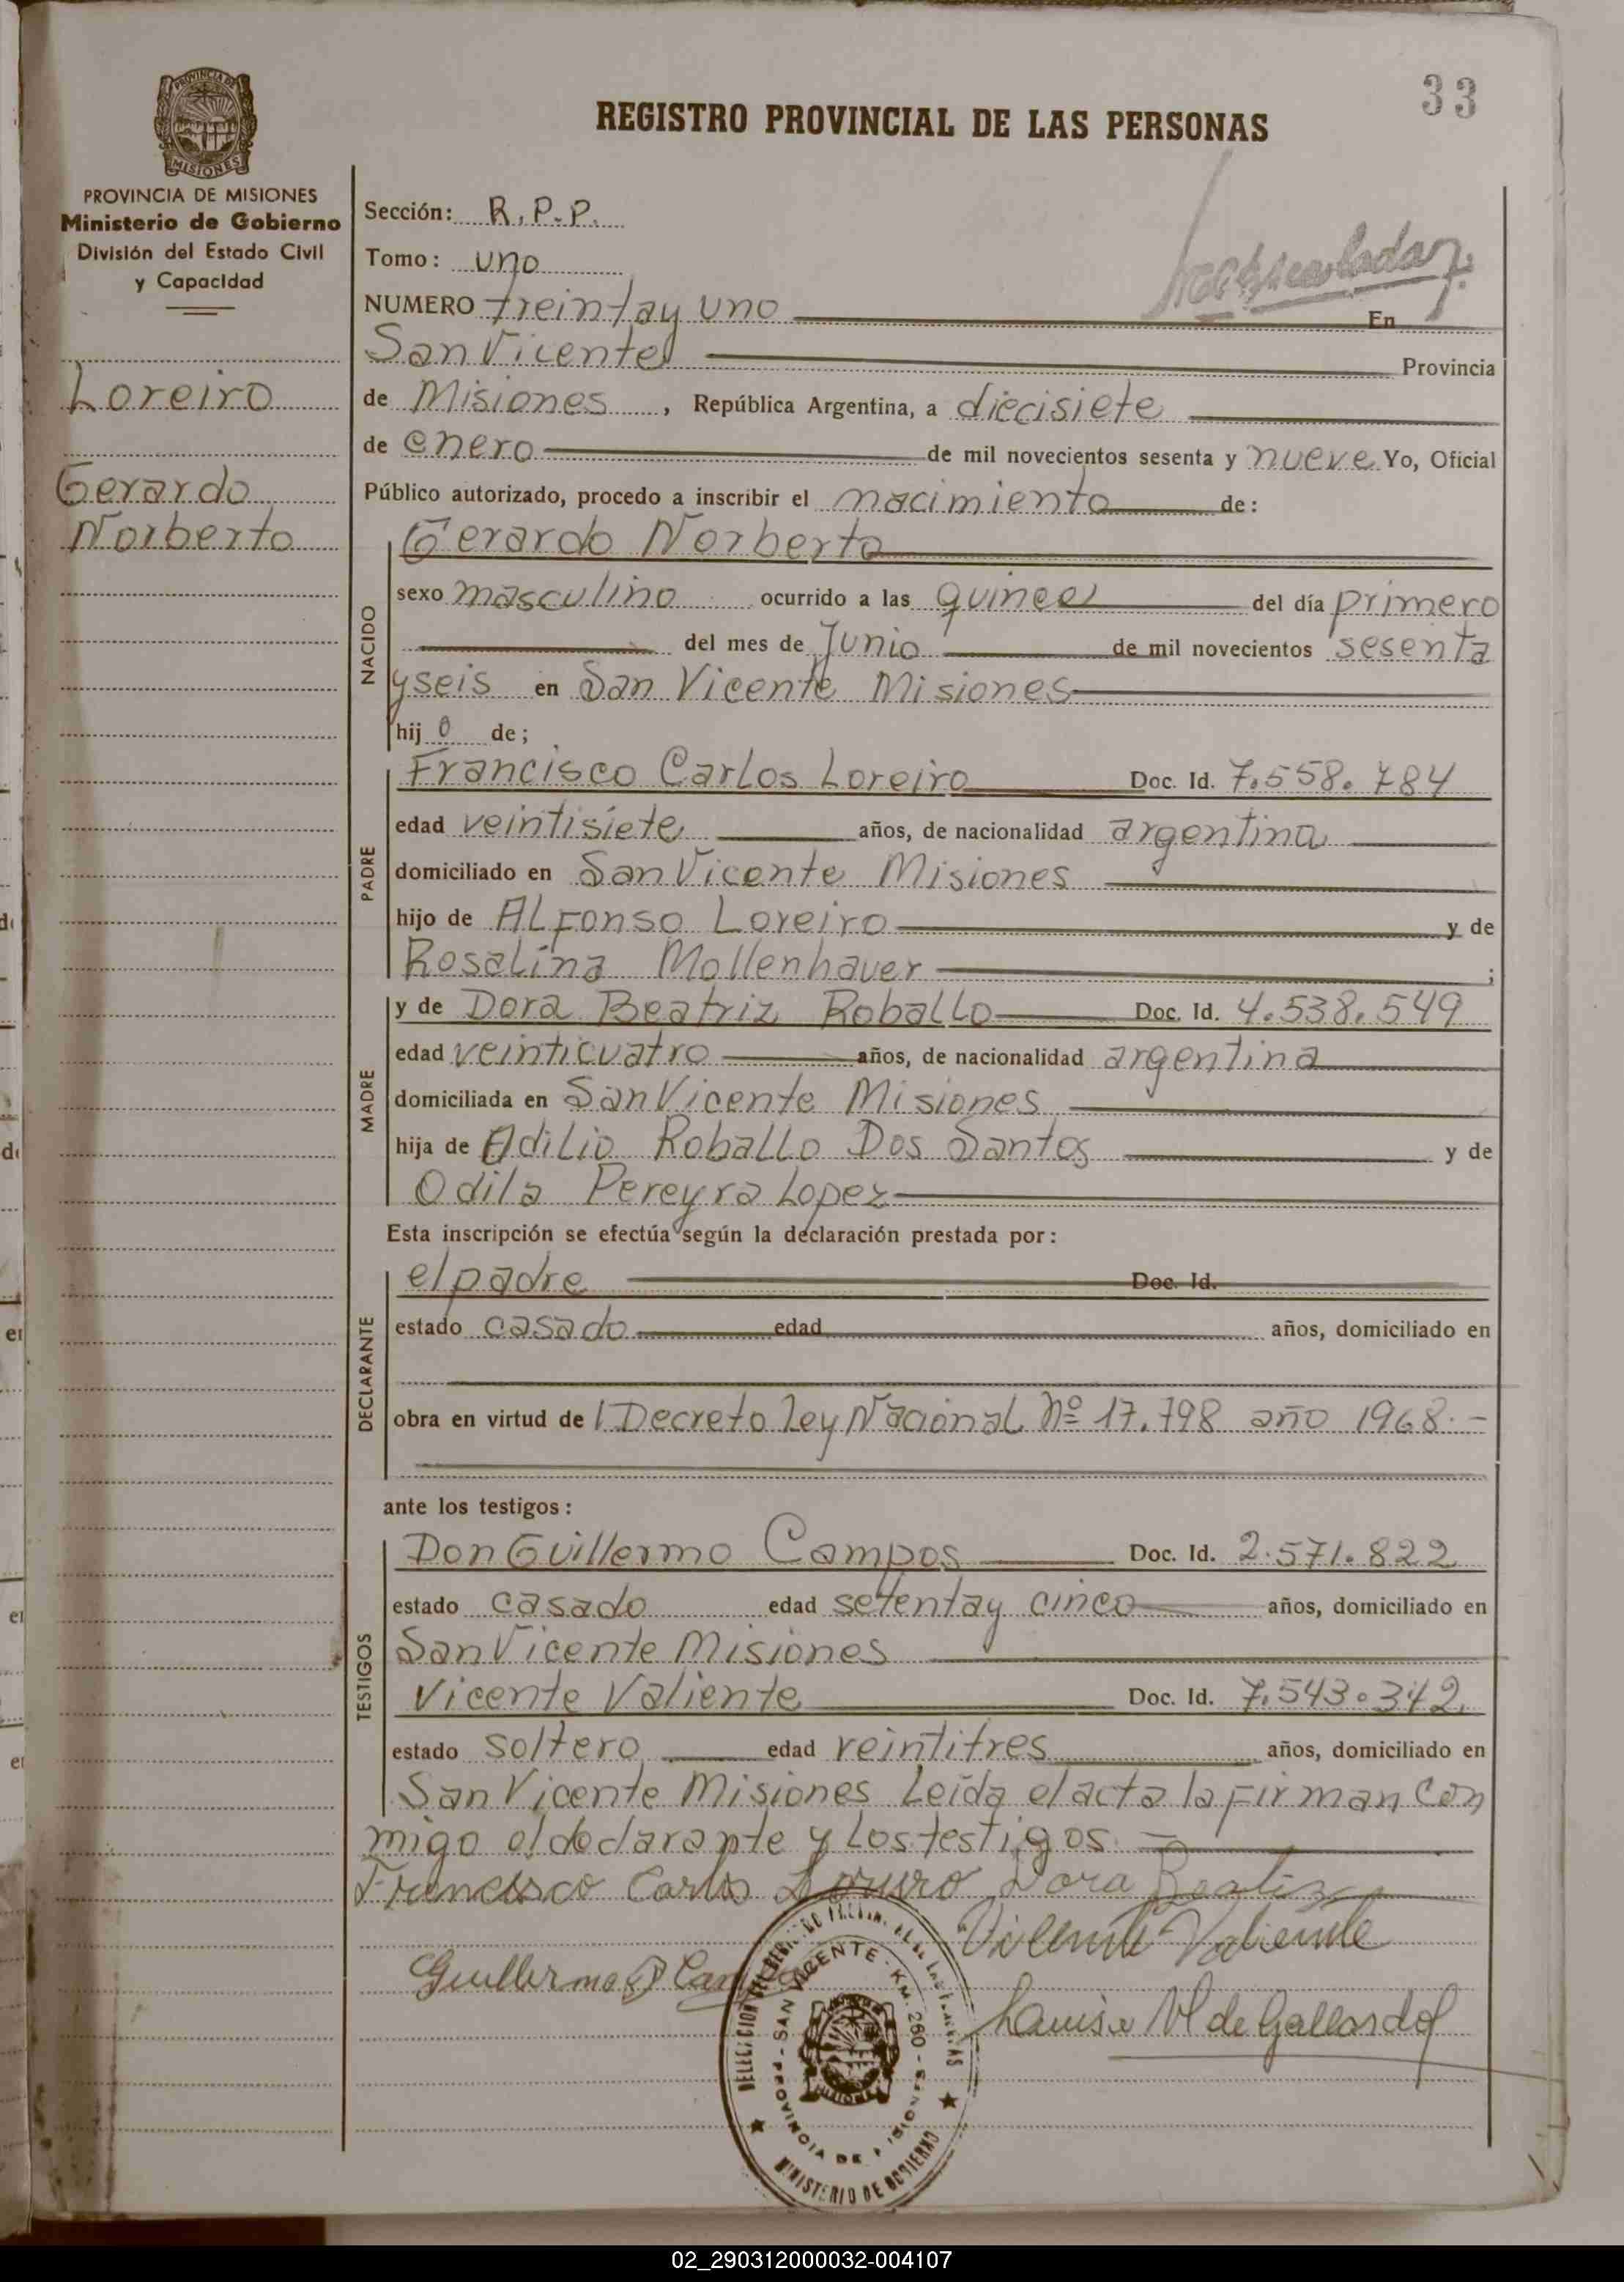 33
REGISTRO PROVINCIAL DE LAS PERSONAS
PROVINCIA DE MISIONES
MISIONES
PROVINCIA DE MISIONES
Ministerio de Gobierno
División del Estado Civil
y Capacidad
Loreiro
Gerardo
Norberto
Sección: R.P.P.
Tomo: uno
NUMERO treinta y uno En
San Vicente Provincia
de Misiones, República Argentina, a diecisiete
de enero de mil novecientos sesenta y nueve Yo, Oficial
Público autorizado, procedo a inscribir el nacimiento de:
NACIDO
Gerardo Norberto
sexo masculino ocurrido a las quince del día primero
del mes de Junio de mil novecientos sesenta
y seis en San Vicente Misiones
hijo de;
PADRE
Francisco Carlos Loreiro Doc. Id. 7.558.784
edad veintisiete años, de nacionalidad argentina
domiciliado en San Vicente Misiones
hijo de Alfonso Loreiro y de
Rosalina Mollenhauer ;
MADRE
y de Dora Beatriz Roballo Doc. Id. 4.538.549
edad veinticuatro años, de nacionalidad argentina
domiciliada en San Vicente Misiones
hija de Adilio Roballo Dos Santos y de
Odila Pereyra Lopez
Esta inscripción se efectúa según la declaración prestada por:
DECLARANTE
el padre Doc. Id.
estado casado edad años, domiciliado en
obra en virtud de l Decreto Ley Nacional Nº 17.798 año 1968.-
ante los testigos:
TESTIGOS
Don Guillermo Campos Doc. Id. 2.571.822
estado casado edad setenta y cinco años, domiciliado en
San Vicente Misiones
Vicente Valiente Doc. Id. 7.543.342.
estado soltero edad veintitres años, domiciliado en
San Vicente Misiones Leída el acta la firman con
migo el declarante y los testigos.—
Francisco Carlos Loreiro Dora Beatriz
Vicente Valiente
Guillermo
de Gallardo
SAN VICENTE - KM. 260 - MISIONES
PROVINCIA DE MISIONES
MINISTERIO DE GOBIERNO
02_290312000032-004107